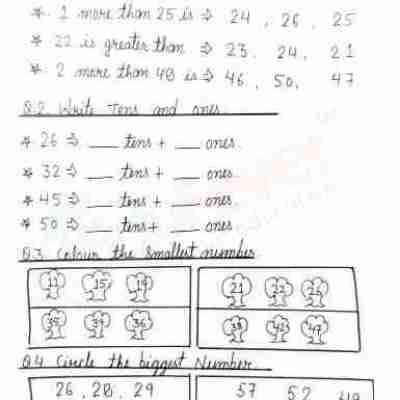 * 1 more than 25 is ⇒ 24 , 26 , 25
* 22 is greater than ⇒ 23, 24, 21
* 2 more than 48 is ⇒ 46 , 50, 47
Q.2. Write Tens and ones.
* 26 ⇒ ___ tens + ___ ones.
* 32 ⇒ ___ tens + ___ ones.
* 45 ⇒ ___ tens + ___ ones.
* 50 ⇒ ___ tens + ___ ones.
Q.3. Colour the Smallest number.
11 15 19 21 22
39 36 38 42 47
Q.4. Circle the biggest Number.
26 , 28 , 29 57 52 49